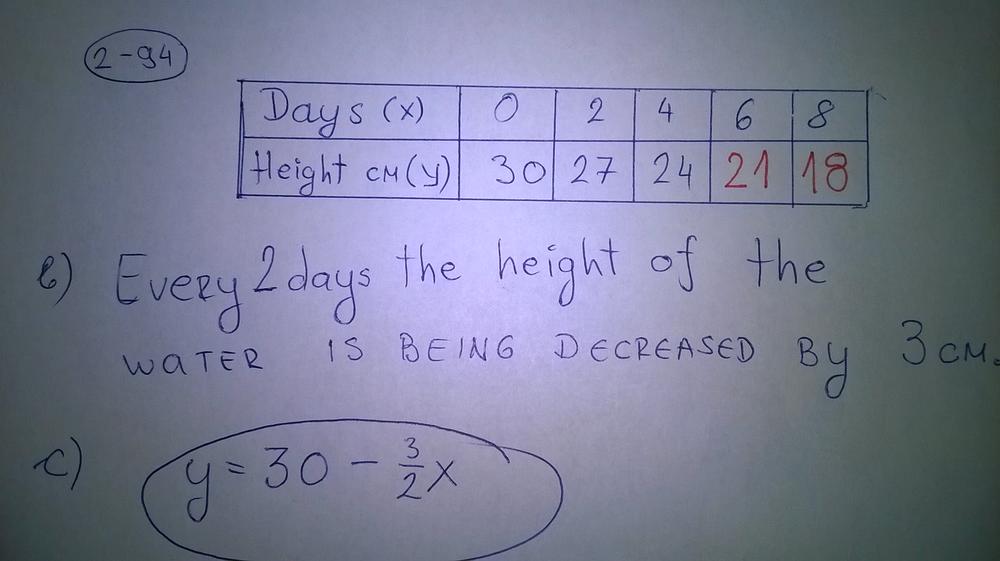 2-94
Days (x) 0 2 4 6 8
Height см(y) 30 27 24 21 18
b) Every 2 days the height of the
WATER IS BEING DECREASED By 3 см.
c) y = 30 - 3/2 x